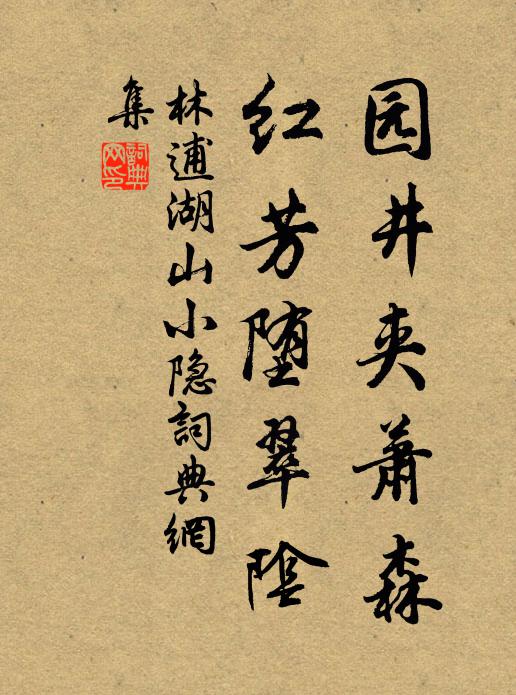 园井夹萧森
红芳堕翠陰
林逋湖山小隐詞典網
集
詞典
网印